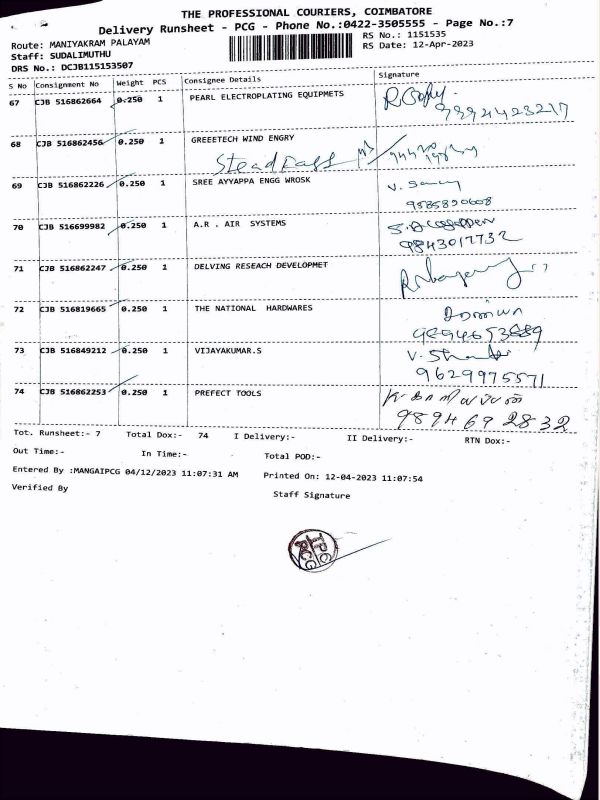 THE PROFESSIONAL COURIERS, COIMBATORE
Delivery Runsheet - PCG - Phone No.:0422-3505555 - Page No.:7
Route: MANIYAKRAM PALAYAM RS No.: 1151535
Staff: SUDALIMUTHU RS Date: 12-Apr-2023
DRS No.: DCJB115153507
S No Consignment No Weight PCS Consignee Details Signature
67 CJB 516862664 0.250 1 PEARL ELECTROPLATING EQUIPMETS
9894423217
68 CJB 516862456 0.250 1 GREEETECH WIND ENGRY
69 CJB 516862226 0.250 1 SREE AYYAPPA ENGG WROSK
9585890608
70 CJB 516699982 0.250 1 A.R . AIR SYSTEMS
9843017732
71 CJB 516862247 0.250 1 DELVING RESEACH DEVELOPMET
72 CJB 516819665 0.250 1 THE NATIONAL HARDWARES
73 CJB 516849212 0.250 1 VIJAYAKUMAR.S
9629975571
74 CJB 516862253 0.250 1 PREFECT TOOLS
9894692832
Tot. Runsheet:- 7 Total Dox:- 74 I Delivery:- II Delivery:- RTN Dox:-
Out Time:- In Time:- Total POD:-
Entered By :MANGAIPCG 04/12/2023 11:07:31 AM Printed On: 12-04-2023 11:07:54
Verified By Staff Signature
TPC
PCG